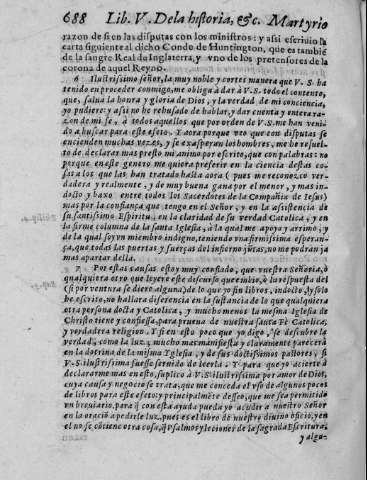 688 Lib. V. De la historia, &c. Martyrio
razon de si en las disputas con los ministros: y assi escriuio la
carta siguiente al dicho Conde de Huntington, que es tambiẽ
de la sangre Real de Inglaterra, y vno de los pretensores de la
corona de aquel Reyno.
6 Ilustrissimo señor, la muy noble y cortes manera que V. S. ha
tenido en proceder conmigo, me obliga à dar à V.S. todo el contento,
que, salua la honra y gloria de Dios, y la verdad de mi conciencia,
yo pudiere: y assi no he rehusado de hablar, y dar cuenta y entera ra-
zon de mi fe, à todos aquellos que por orden de V.S. me han veni-
do a buscar para este efeto. Y aora porque veo que con disputas se
encienden muchas vezes, y se exasperan los hombres, me he resuel-
to de declarar mas presto mi animo por escrito, que con palabras: no
porque en este genero me quiera preferir en la ciencia destas co-
sas a los que las han tratado hasta aora (pues me reconozco ver-
daderа y realmente, y de muy buena gana por el menor, y mas in-
docto y baxo entre todos los Sacerdotes de la Compañia de Iesus)
mas por la confiança que tengo en el Señor, y en la assistencia de
su santissimo Espiritu, en la claridad de su verdad Catolica, y en
la firme coluna de la santa Iglesia, à la qual me apoyo y arrimo, y
de la qual soy vn miembro indigno, teniendo vna firmissima esperan-
ça, que todas las puertas y fuerças del infierno jamas, no me podran ja
mas apartar della.
7 Por estas causas estoy muy confiado, que vuestra Señoria, ò
qualquiera otro que leyere este discurso que embio, ò la respuesta del
(si por ventura se diere alguna) de lo que yo sin libros, indocto, y solo
he escrito, no hallara diferencia en la sustancia de lo que qualquiera
otra persona docta y Catolica, y mucho menos la mesma Iglesia de
Christo tiene y confiessa, para prueua de nuestra santa Fè Catolica,
y verdadera religion. Y si en esto poco que yo digo, se descubre la
verdad, como la luz, mucho mas manifiesta y claramente parecera
en la dotrina de la misma Yglesia, y de sus doctissimos pastores, si
V.S. ilustrissima fuesse seruido de leerla. Y para que yo acierte à
declararme mas en esto, suplico à V.S. ilustrissima por amor de Dios,
cuya causa y negocio se trata, que me conceda el vso de algunos pocos
de libros para este efeto: y principalmẽte desseo, que me sea permitido
vn breuiario, para q̃ con esta ayuda pueda yo acudir a nuestro Señor
en la oraciõ a pedirle luz, pues es el libro de nuestro diuino oficio, y en
el no se cõtiene otra cosa, q̃ Psalmos y leciones de la sagrada Escritura,
y algu-